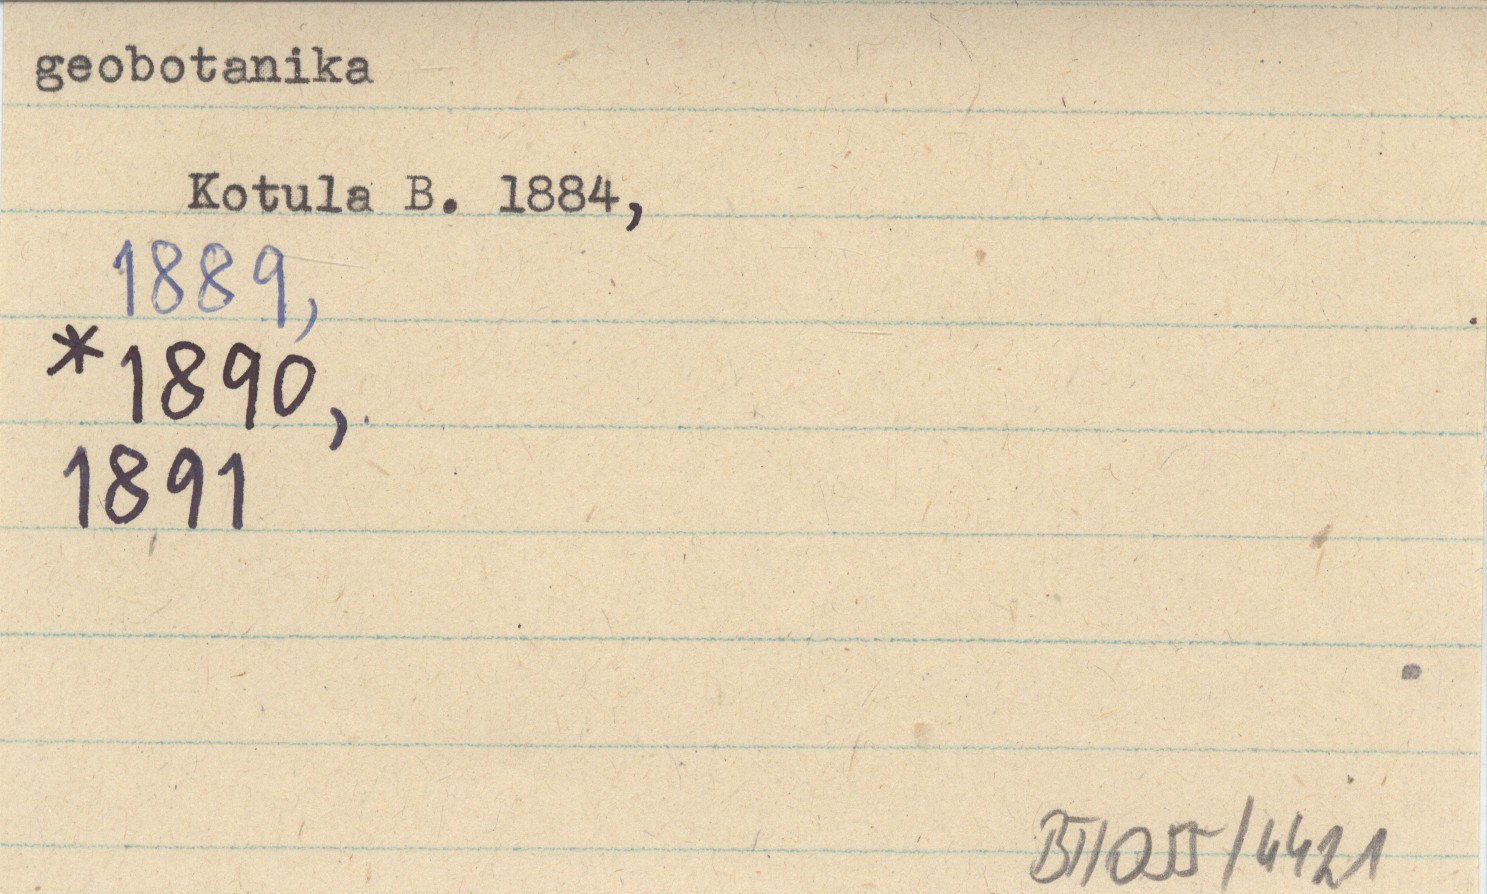 geobotanika
Kotula B. 1884,
1889,
*1890,
1891
BII/055/4421